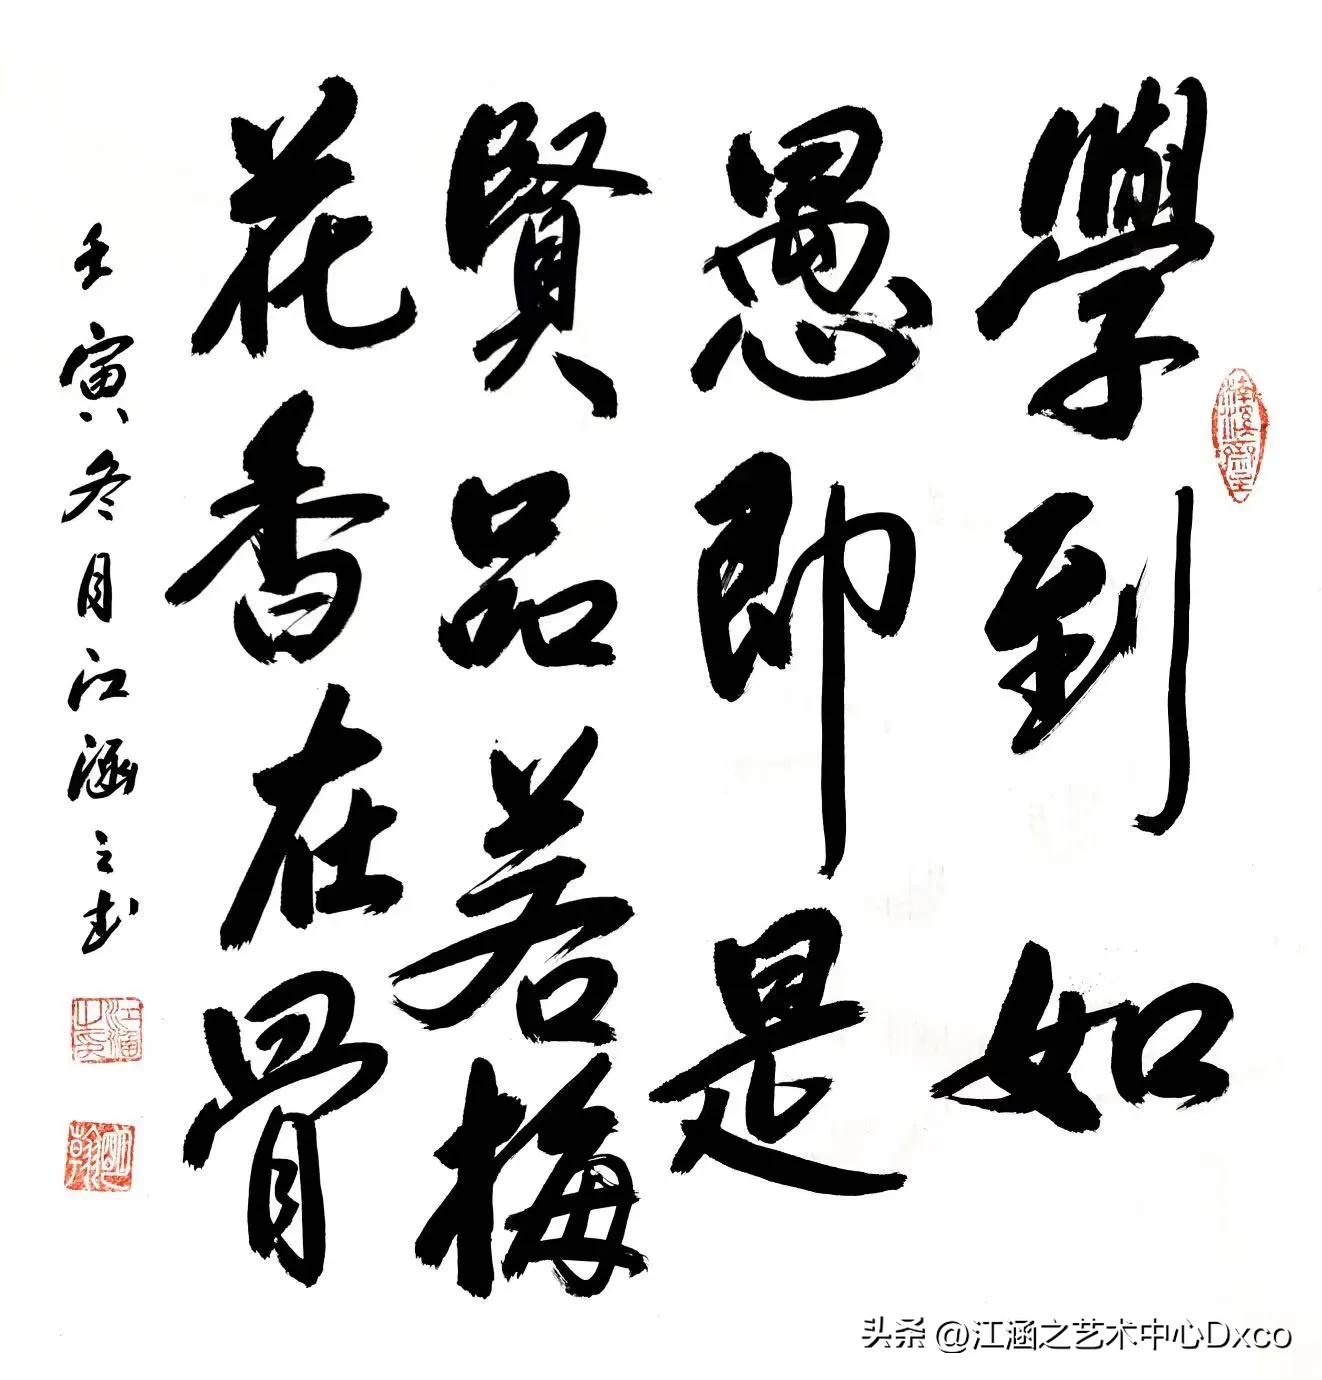 學到如
愚即是
賢品若梅
花香在骨
壬寅冬月江涵之书
江涵之印
头条 @江涵之艺术中心Dxco